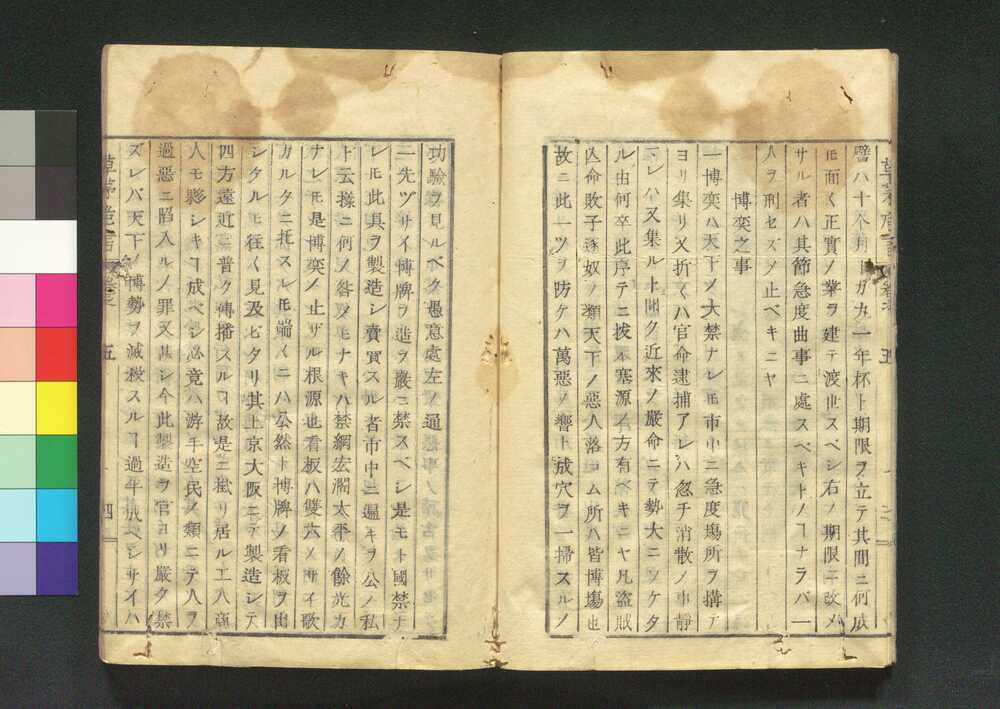 譬ハ十ケ月カ一年杯ト期限ヲ立テ其間ニ何成
ヒ面〱正實ノ業ヲ建テ渡世スベシ右ノ期限ニ改メ
サル者ハ其節急度曲事ニ處スベキトノヿナラバ一
人ヲ刑セズ〆止ベキニヤ
博奕之事
一博奕ハ天下ノ大禁ナレ𪜈市中ニ急度塲所ヲ搆テ
ヨリ集リ又折〱ハ官命逮捕アレハ忽チ消散ノ事靜
マレハ又集ルト聞ク近來ノ嚴命ニテ勢大ニソケタ
ル由何卒此序テニ拔本塞源ノ方有ベキニヤ凡盜賊
凶命敗子逐奴ノ類天下ノ惡人落コム所ハ皆博塲也
故ニ此一ツヲ防ケハ萬惡ノ響ト成穴ヲ一掃スルノ
功驗ヲ見ルベク愚意處左ノ通
一先ヅサイ博牌ヲ造ヲ嚴ニ禁スベシ是モト國禁ナ
レ𪜈此具ヲ製造シ賣買スル者市中ニ遍キヲ公ノ私
ト云樣ニ何ノ咎メモナキハ禁網宏濶太平ノ餘光カ
ナレ𪜈是博奕ノ止ザル根源也看板ハ雙六ノサイ歌
カルタニ托スル𪜈端〱ニハ公然ト博牌ノ看板ヲ出
シタル𪜈往〱見及ビタリ其上京大阪ニテ製造シテ
四方遠近ニ普ク傳播スルヿ故是ニ掛リ居ル工人商
人モ夥シキヿ成ベシ必竟ハ游手空民ノ類ニテ人ヲ
過惡ニ陷入ルノ罪又甚シ今此製造ヲ官ヨリ嚴ク禁
ズレバ天下ノ博勢ヲ減殺スルヿ過半成ベシサイハ
草茅危言
五
四